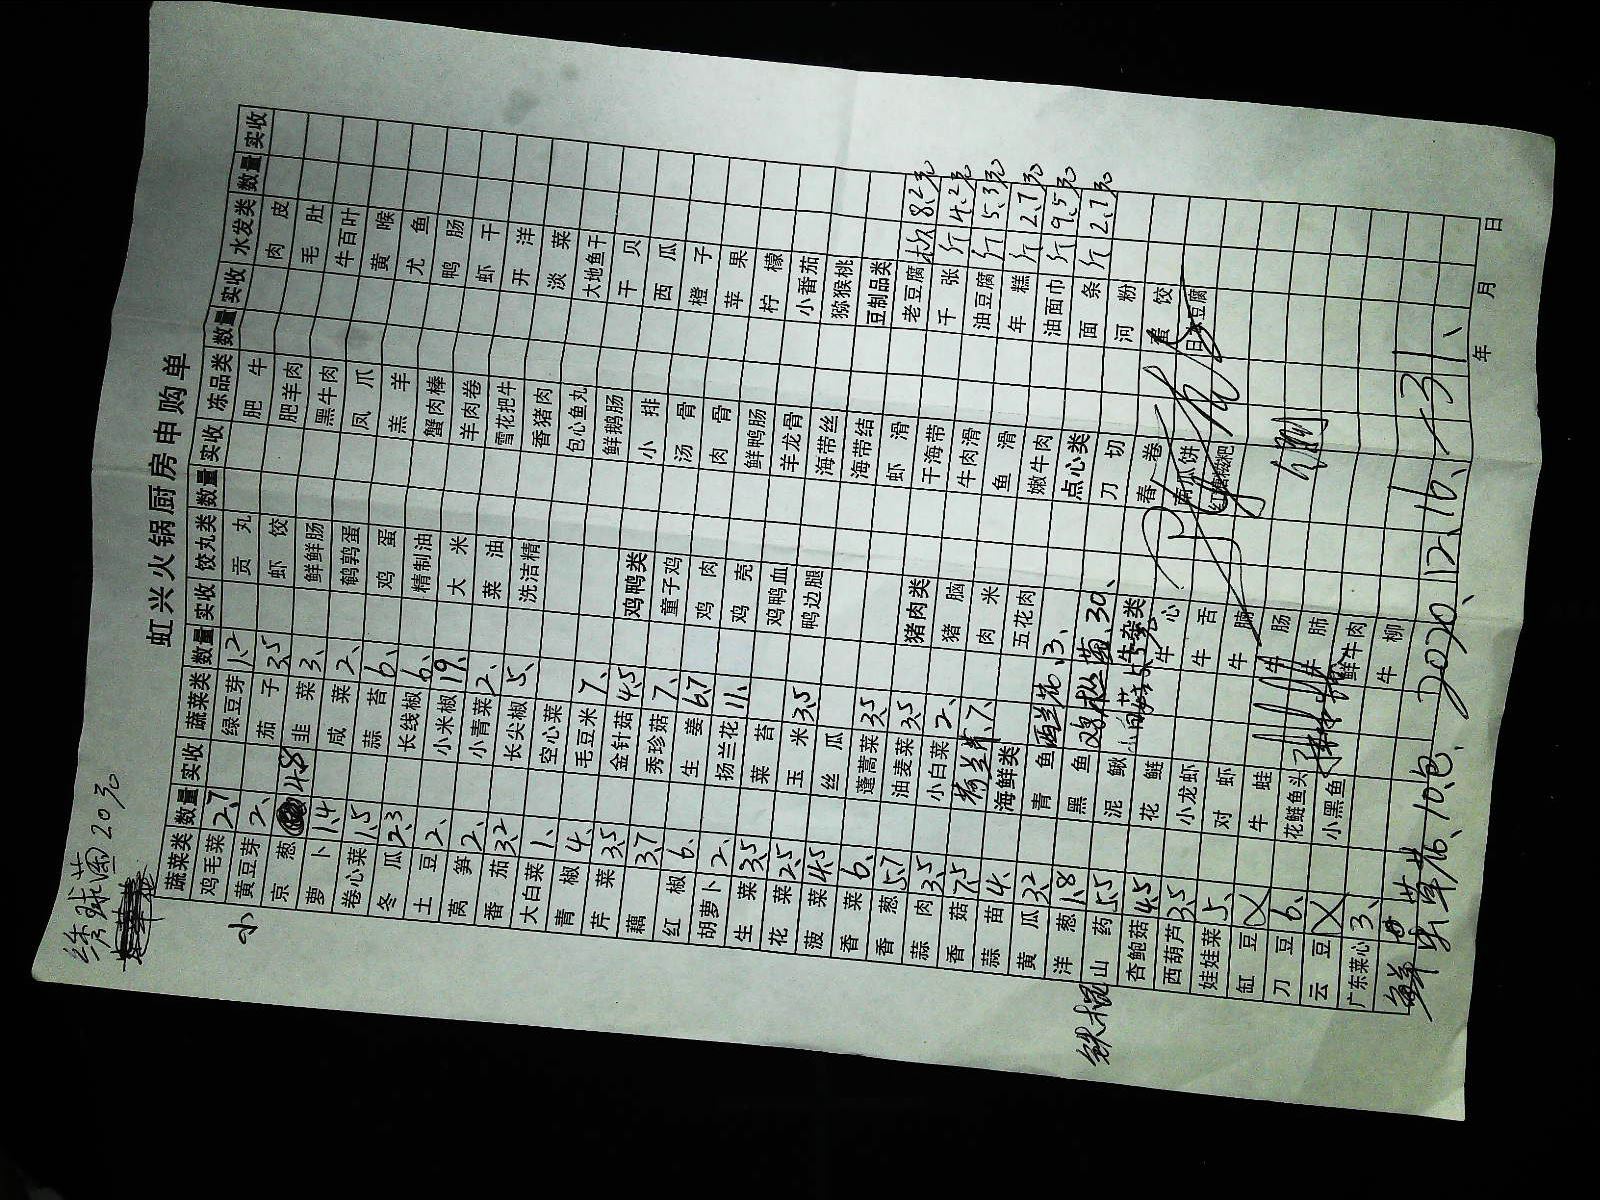 绣球菌20元
虹兴火锅厨房申购单
蔬菜类 数量 实收 蔬菜类 数量 实收 饺丸类 数量 实收 冻品类 数量 实收 水发类 数量 实收
鸡毛菜 2.7 绿豆芽 1.2 贡丸 肥牛 肉皮
小 黄豆芽 2、 茄子 3.5 虾饺 肥羊肉 毛肚
京葱 4.8 韭菜 3、 鲜鲜肠 黑牛肉 牛百叶
萝卜 1.4 咸菜 2、 鹌鹑蛋 凤爪 黄喉
卷心菜 1.5 蒜苔 6、 鸡蛋 羔羊 尤鱼
冬瓜 2.3 长线椒 6、 精制油 蟹肉棒 鸭肠
土豆 2、 小米椒 19、 大米 羊肉卷 虾干
莴笋 2、 小青菜 2、 菜油 雪花把牛 开洋
番茄 3.2 长尖椒 5、 洗洁精 香猪肉 淡菜
大白菜 1、 空心菜 包心鱼丸 大地鱼干
青椒 4、 毛豆米 7、 鲜鹅肠 干贝
芹菜 3.5 金针菇 4.5 鸡鸭类 小排 西瓜
藕 3.7 秀珍菇 7、 童子鸡 汤骨 橙子
红椒 6、 生姜 6.7 鸡肉 肉骨 苹果
胡萝卜 2、 扬兰花 11、 鸡壳 鲜鸭肠 柠檬
生菜 3.5 菜苔 鸡鸭血 羊龙骨 小番茄
花菜 2.5 玉米 3.5 鸭边腿 海带丝 猕猴桃
菠菜 4.5 丝瓜 海带结 豆制品类
香菜 6、 蓬蒿菜 3.5 虾滑 老豆腐 板 8.2元
香葱 5.7 油麦菜 3.5 猪肉类 干海带 千张 斤 4.2元
蒜肉 3.5 小白菜 2、 猪脑 牛肉滑 油豆腐 斤 5.3元
香菇 7.5 荷兰芹、7、 肉米 鱼滑 年糕 斤 2.7元
蒜苗 4、 海鲜类 五花肉 嫩牛肉 油面巾 斤 9.5元
黄瓜 3.2 青鱼 西兰花 3、 点心类 面条 斤 2.7元
洋葱 1.8 黑鱼 30、 刀切 河粉
铁棍 山药 5.5 泥鳅 牛杂类 春卷 蛋饺
杏鲍菇 4.5 花鲢 牛心 南瓜饼 日本豆腐
西葫芦 3.5 小龙虾 牛舌 红糖糍粑
娃娃菜 5、 对虾
豇豆 X 牛蛙 牛肠
刀豆 6、 花鲢鱼头 牛肺
云豆 X 小黑鱼 鲜牛肉
广东菜心 3、 牛柳
2020、12、16、 31、
年 月 日